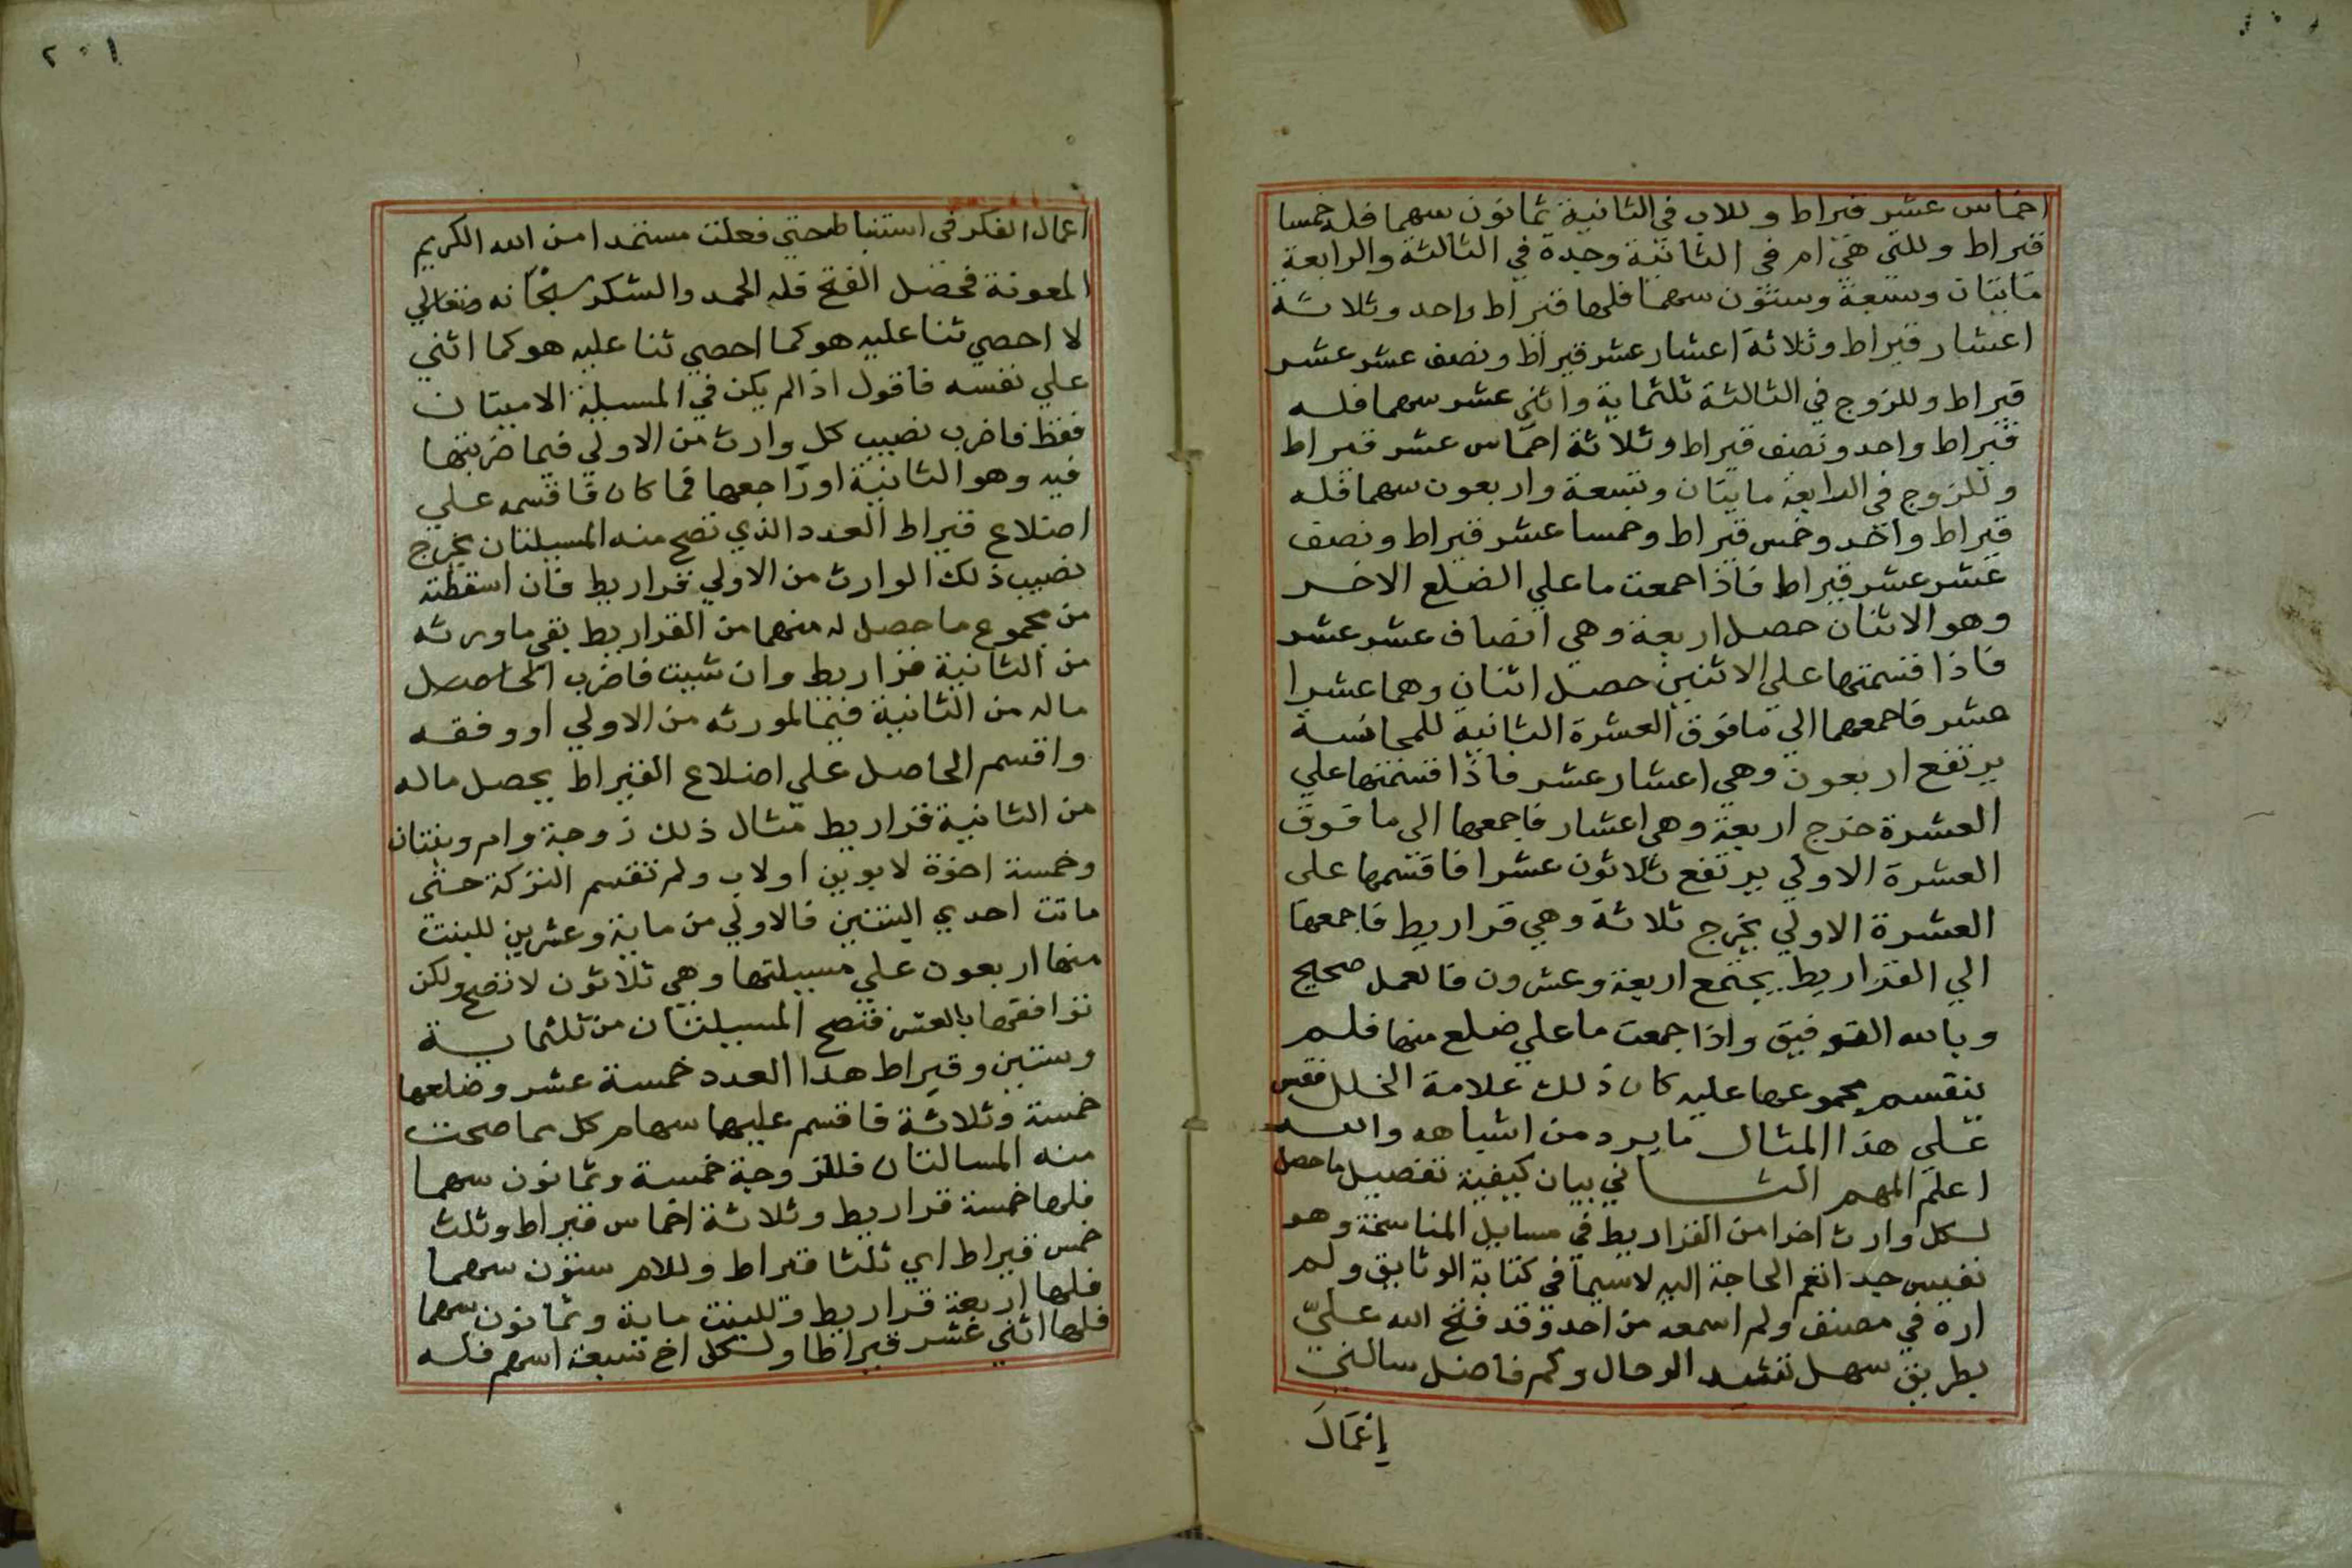 اخماس عشر قيراط وللاب في الثانية ثمانون سهما فله خمسا
قيراط وللتي هي ام في الثانية وجدة في الثالثة والرابعة
مايتان وستعة وستون سهما فلها قيراط واحد وثلاثة
اعشار قيراط وثلاثة اعشار عشر قيراط ونصف عشر عشر
قيراط وللزوج في الثالثة ثلثماية واثني عشر سهما فله
قيراط واحد ونصف قيراط وثلاثة اخماس عشر قيراط
وللزوج في الرابعة مايتان وتسعة واربعون سهما فله
قيراط واحد وخمس قيراط وخمسا عشر قيراط ونصف
عشر عشر قيراط فاذا جمعت ما علي الضلع الاخر
وهو الاثنان حصل اربعة وهي انصاف عشر عشر
فاذا قسمتها علي الاثنين حصل اثنان وهما عشرا
عشر فاجمعهما الي ما فوق العشرة الثانية للمجانسة
يرتفع اربعون وهي اعشار عشر فاذا قسمتها علي
العشرة خرج اربعة وهي اعشار فاجمعها الي ما فوق
العشرة الاولي يرتفع ثلاثون عشرا فاقسمها على
العشرة الاولي يخرج ثلاثة وهي قراريط فاجمعها
الي القراريط يجتمع اربعة وعشرون فالعمل صحيح
وبالله التوفيق واذا جمعت ما علي ضلع منها فلم
ينقسم مجموعها عليه كان ذلك علامة الخلل فقس
علي هذا المثال ما يرد من اشباهه والله
اعلم المهم الثاني بيان كيفية تفصيل ما حصل
لكل وارث اخرا من القراريط في مسايل المناسخة وهو
نفيس جدا تعم الحاجة اليه لاسيما في كتابة الوثايق ولم
اره في مصنف ولم اسمعه من احد وقد فتح الله عليّ
بطريق سهل تشد الرحال وكم فاضل سالني
إعمال
٢٠١
اعمال الفكر في استنباط حتي فعلت مستمدا من الله الكريم
المعونة فحصل الفتح فله الحمد والشكر سبحانه وتعالي
لا احصي ثنا عليه هو كما احصي ثنا عليه هو كما اثني
علي نفسه فاقول اذا لم يكن في المسيلة الا ميتان
فقط فاضرب نصيب كل وارث من الاولي فيما ضربتها
فيه وهو الثانية او راجعها فما كان فاقسمه علي
اضلاع قيراط العدد الذي تصح منه المسيلتان يخرج
نصيب ذلك الوارث من الاولي قراريط فان اسقطته
من مجموع ما حصل له منهما من القراريط بقي ما ورثه
من الثانية قراريط وان شيت فاضرب الحاصل
ماله من الثانية فيما لمورثه من الاولي او وفقه
واقسم الحاصل علي اضلاع القيراط يحصل ماله
من الثانية قراريط مثال ذلك زوجة وام وبنتان
وخمسة اخوة لابوين اولاب ولم تقسم التركة حتى
ماتت احدي البنتين فالاولي من ماية وعشرين للبنت
منها اربعون علي مسيلتها وهي ثلاثون لا تصح ولكن
توافقها بالعشر فتصح المسيلتان من ثلثماية
وستين وقيراط هذا العدد خمسة عشر وضلعها
خمسة وثلاثة فاقسم عليهما سهام كل مما صحت
منه المسالتان فللزوجة خمسة وثمانون سهما
فلها خمسة قراريط وثلاثة اخماس قيراط وثلث
خمس قيراط اي ثلثا قيراط وللام ستون سهما
فلها اربعة قراريط وللبنت ماية وثمانون سهما
فلها اثني عشر قيراطا ولكل اخ تسعة اسهم فله